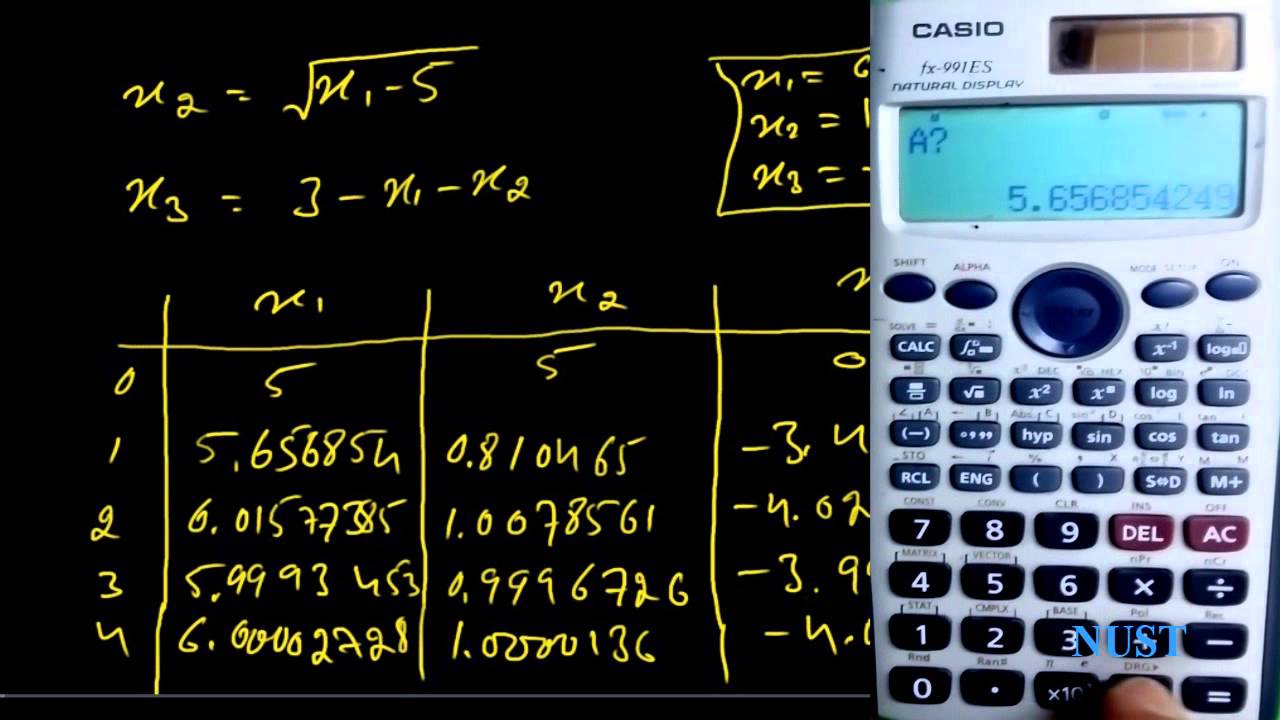 x₂ = √x₁ - 5
x₃ = 3 - x₁ - x₂
x₁ =
x₂ =
x₃ = -
x₁ x₂
0 5 5 0
1 5.656854 0.810465 -3.4
2 6.01577385 1.0078561 -4.02
3 5.9993453 0.9996726 -3.99
4 6.00002728 1.0000136 -4.0
CASIO
fx-991ES
NATURAL DISPLAY
A?
5.656854249
SHIFT ALPHA MODE SETUP ON
SOLVE =
CALC x⁻¹ log
√ x² x log ln
(−) hyp sin cos tan
STO
RCL ENG ( ) S⇔D M+
CONST CONV CLR INS OFF
7 8 9 DEL AC
MATRIX VECTOR nPr nCr
4 5 6 × ÷
STAT CMPLX BASE Pol Rec
1 2 3 −
NUST
Rnd Ran# π e DRG▸
0 . ×10 =